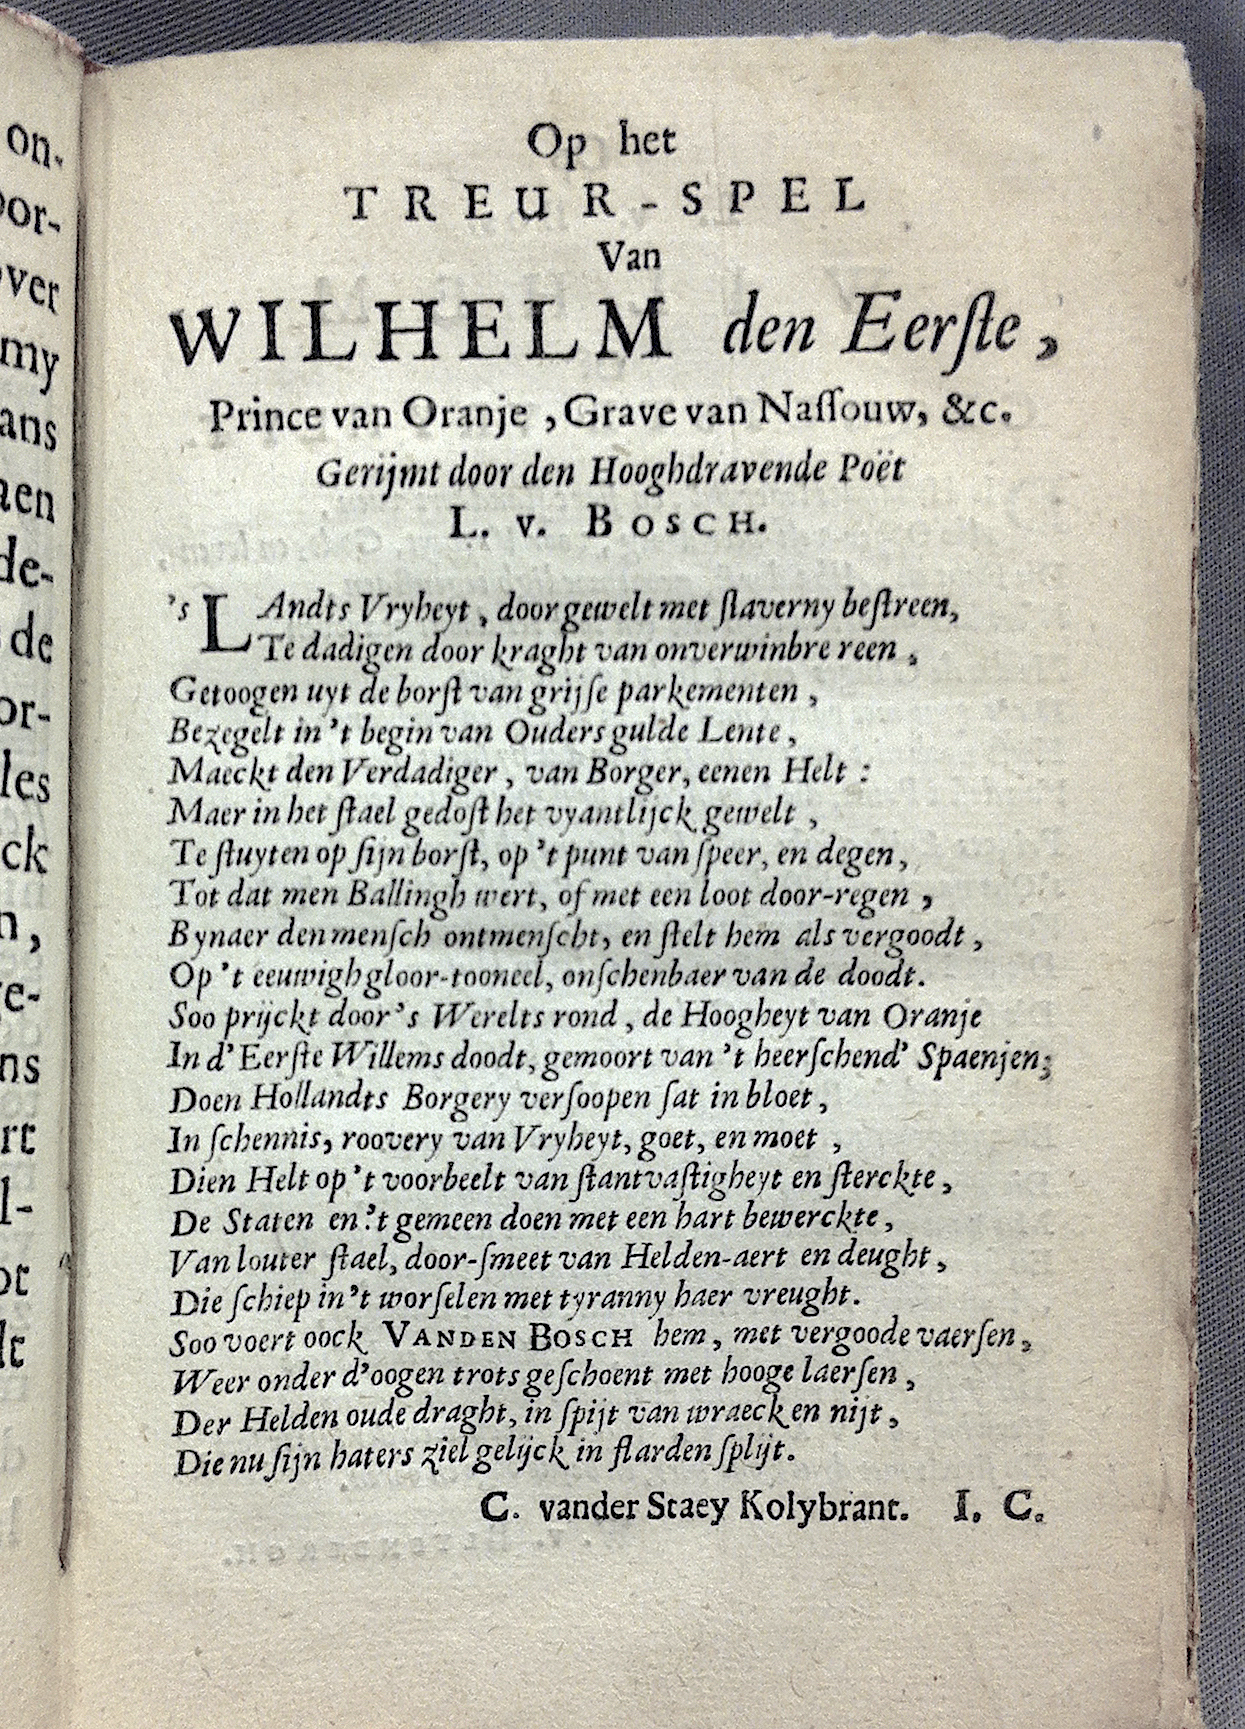 on-
oor-
over
my
ans
aen
de-
de
or-
les
ck
n,
re-
ns
rt
l-
ot
lt
Op het
TREUR-SPEL
Van
WILHELM den Eerſte,
Prince van Oranje, Grave van Naſſouw, &c.
Gerijmt door den Hooghdravende Poët
L. v. BOSCH.
's LAndts Vryheyt, door gewelt met ſlaverny beſtreen,
Te dadigen door kraght van onverwinbre reen,
Getoogen uyt de borſt van grijſe parkementen,
Bezegelt in 't begin van Ouders gulde Lente,
Maeckt den Verdadiger, van Borger, eenen Helt:
Maer in het ſtael gedoſt het vyantlijck gewelt,
Te ſtuyten op ſijn borſt, op 't punt van ſpeer, en degen,
Tot dat men Ballingh wert, of met een loot door-regen,
Bynaer den menſch ontmenſcht, en ſtelt hem als vergoodt,
Op 't eeuwigh gloor-tooneel, onſchenbaer van de doodt.
Soo prijckt door 's Werelts rond, de Hoogheyt van Oranje
In d' Eerſte Willems doodt, gemoort van 't heerſchend' Spaenjen;
Doen Hollandts Borgery verſoopen ſat in bloet,
In ſchennis, roovery van Vryheyt, goet, en moet,
Dien Helt op 't voorbeelt van ſtantvaſtigheyt en ſterckte,
De Staten en 't gemeen doen met een hart bewerckte,
Van louter ſtael, door-ſmeet van Helden-aert en deught,
Die ſchiep in 't worſelen met tyranny haer vreught.
Soo voert oock VANDEN BOSCH hem, met vergoode vaerſen,
Weer onder d'oogen trots geſchoent met hooge laerſen,
Der Helden oude draght, in ſpijt van wraeck en nijt,
Die nu ſijn haters ziel gelijck in flarden ſplijt.
C. vander Staey Kolybrant. I. C.